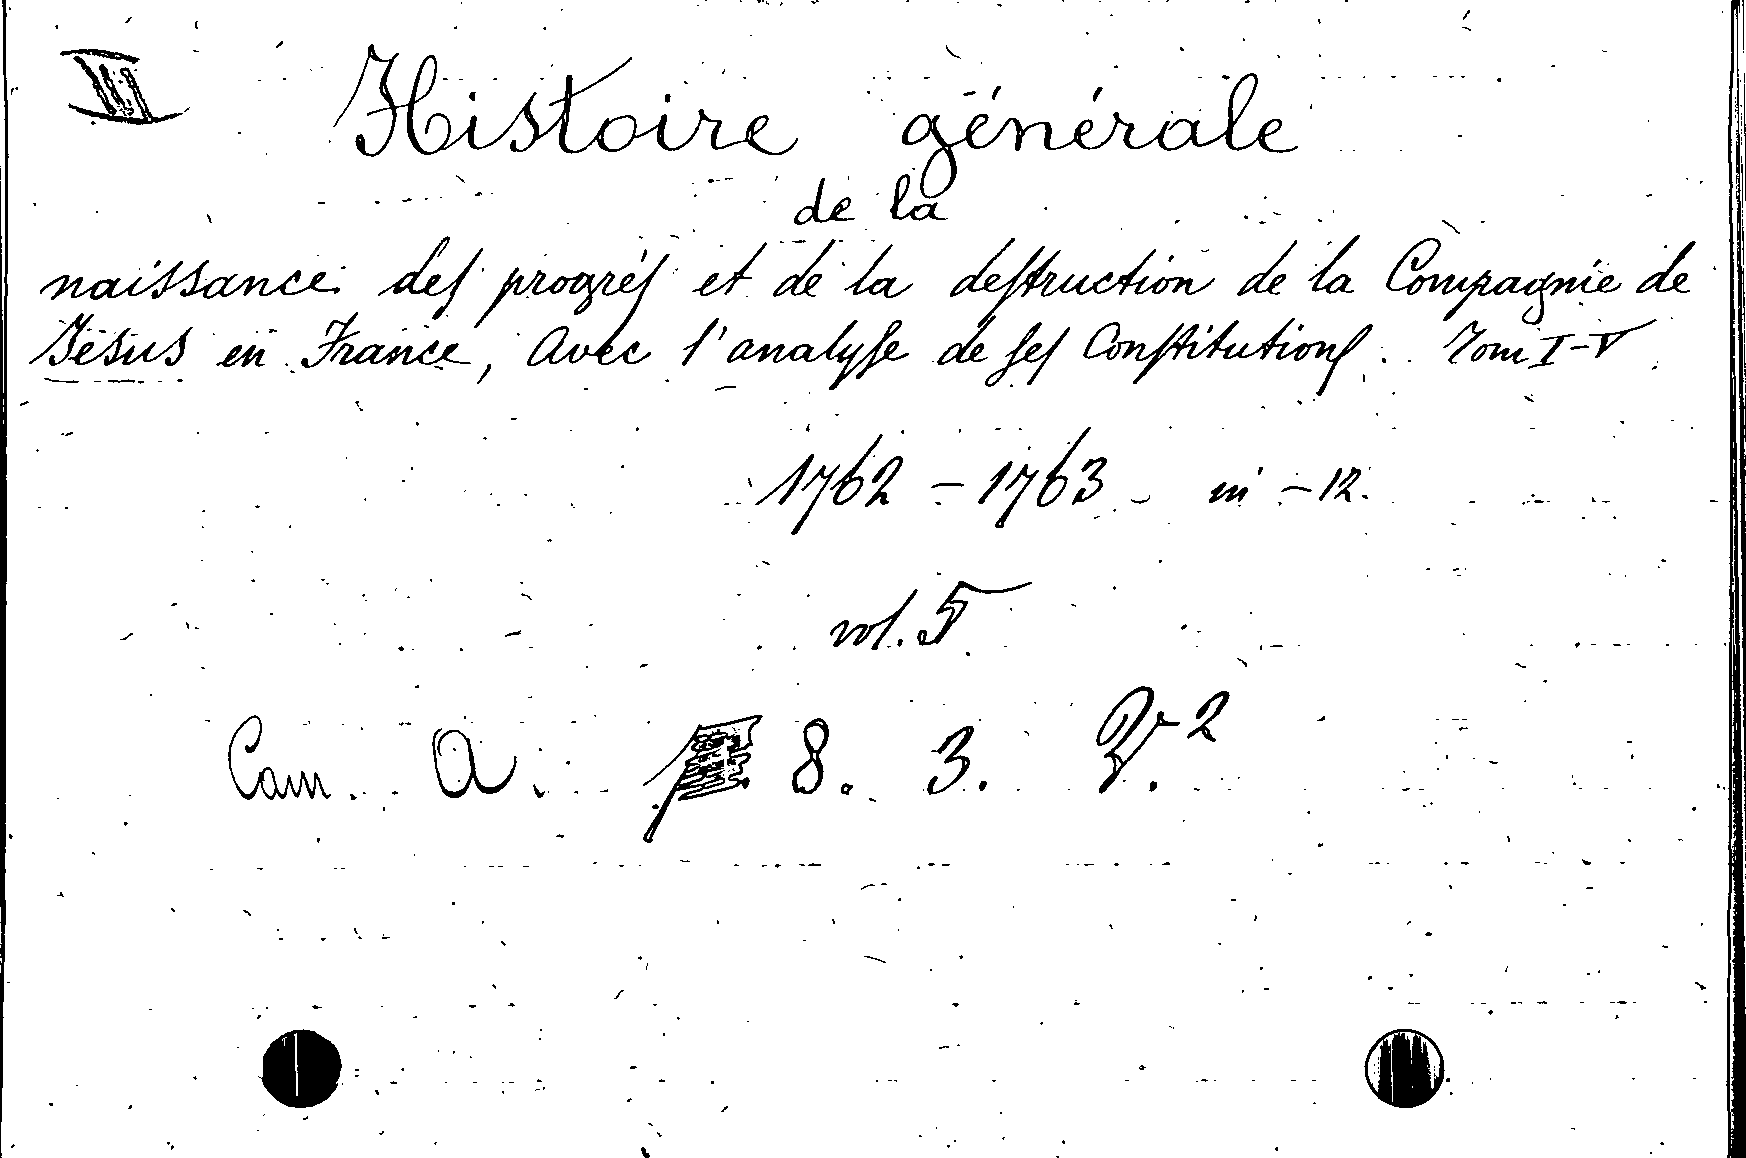 III
Histoire générale
de la
naissance des progrés et de la destruction de la Compagnie de
Jésus en France, Avec l'analyse de ses Constitutions. Tom I-V
1762 - 1763 - in - 12.
vol. 5
Cam. A. 8. 3.